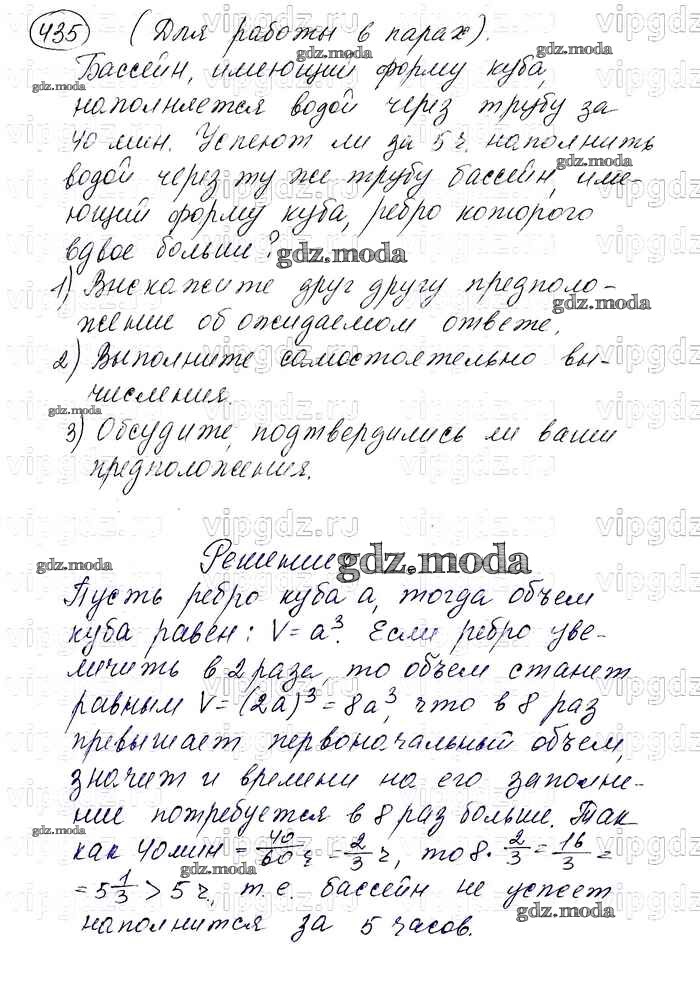 435 (Для работы в парах).
Бассейн, имеющий форму куба,
наполняется водой через трубу за
40 мин. Успеют ли за 5 ч. наполнить
водой через ту же трубу бассейн, име-
ющий форму куба, ребро которого
вдвое больше?
1) Выскажите друг другу предполо-
жение об ожидаемом ответе.
2) Выполните самостоятельно вы-
числения.
3) Обсудите, подтвердились ли ваши
предположения.
Решение
Пусть ребро куба a, тогда объем
куба равен: V = a³. Если ребро уве-
личить в 2 раза, то объем станет
равным V = (2a)³ = 8a³, что в 8 раз
превышает первоначальный объем,
значит и времени на его заполне-
ние потребуется в 8 раз больше. Так
как 40 мин = 40/60 ч = 2/3 ч, то 8 · 2/3 = 16/3 =
= 5 1/3 > 5 ч., т.е. бассейн не успеет
наполнится за 5 часов.
gdz.moda
vipgdz.ru